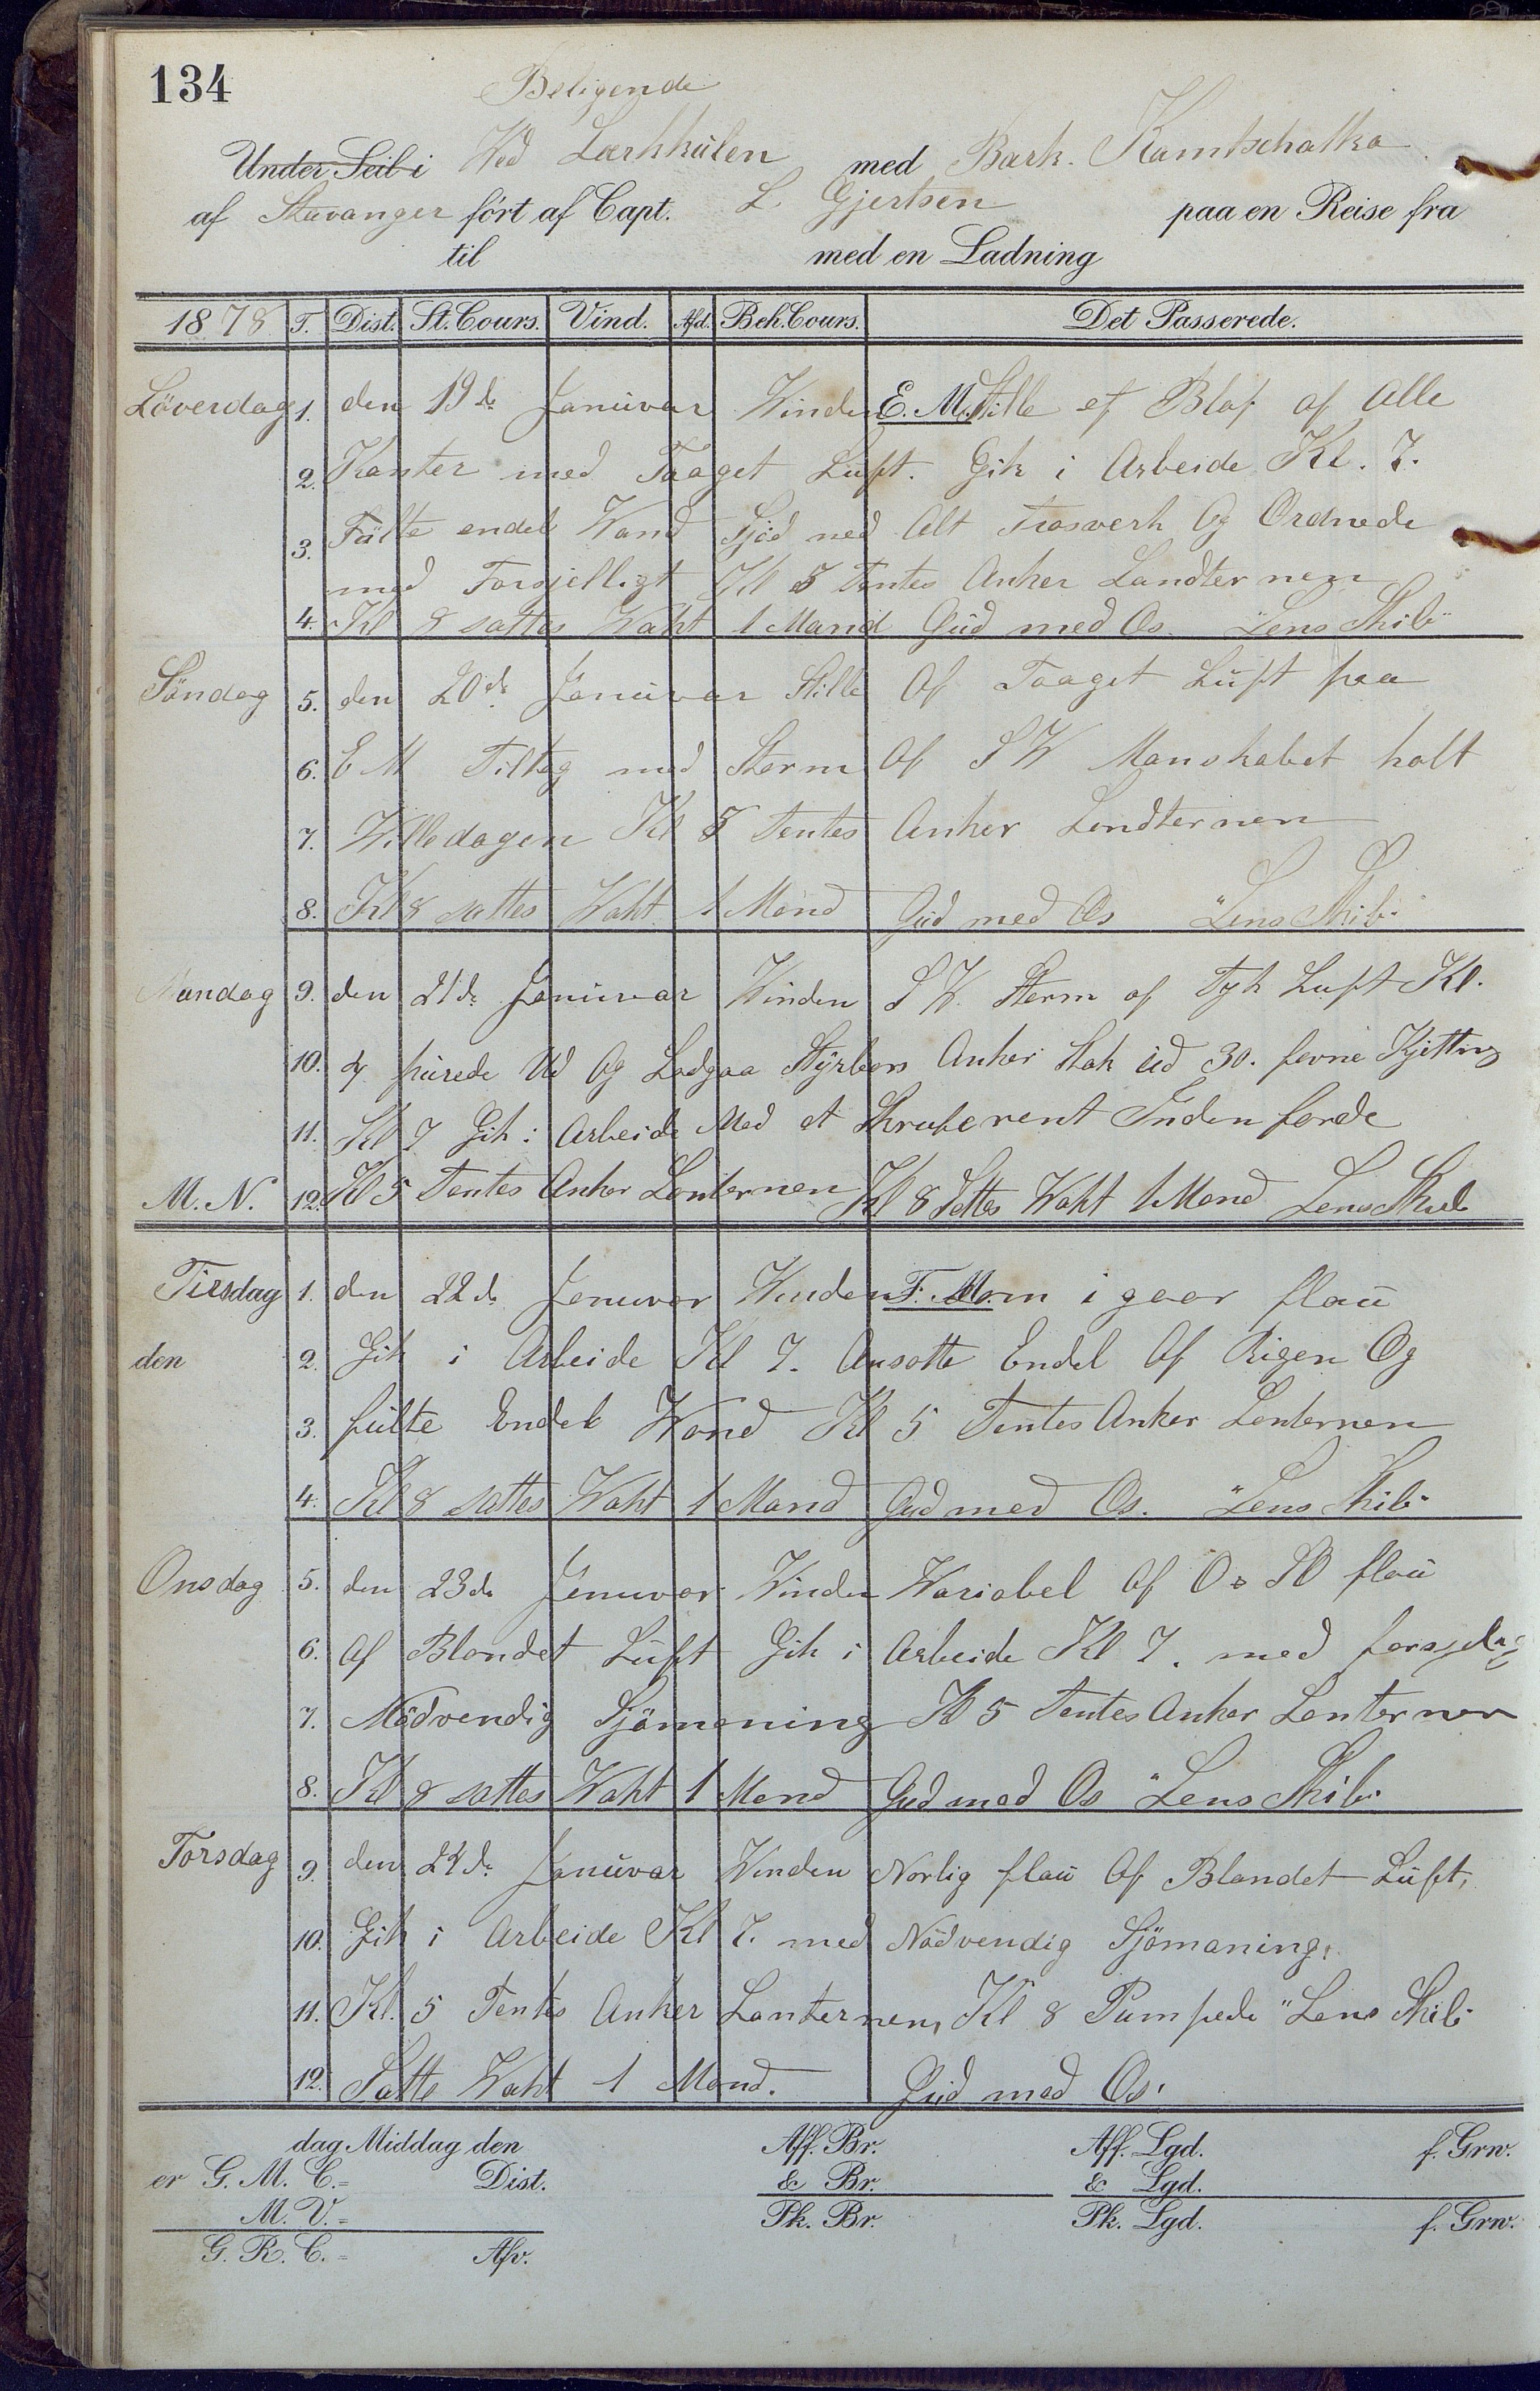 134
Beligende
Under Seil i Ved Larkhulen med Bark. Kamtschatka
af Stavanger fört af Capt. L. Gjertsen paa en Reise fra
til med en Ladning
1878 T. Dist. St. Cours. Vind. Afd. Beh. Cours. Det Passerede.
Löverdag 1. den 19de Januvar Winden E. M. Stille af Blaf af Alle
2. Kanter med Taaget Luft. Gik i Arbeide Kl. 7.
3. Fülte endel Wand Sjöd ned Alt Trosverk Og Ordnede
med Forsjelligt Kl 5 Tentes Anker Landternen
4. Kl 8 sattes Waht 1 Mand Gud med Os. "Lens Skib"
Söndag 5. den 20de Januvar Stille Af Taaget Luft paa
6. E M Tiltog med Storm Af S W Manskabet holt
7. Willedagen Kl 5 Tentes Anker Landternen
8. Kl 8 sattes Waht 1 Mand Gud med Os "Lens Skib"
Mandag 9. den 21de Januvar Winden S W. Storm af Tyk Luft Kl.
10. 4 purede Ud Og Lodgaa Styrbors Anker Stak ud 30. favne Kjetting
11. Kl 7 Gik i Arbeide Med at Skrabe rent Inden forde
M. N. 12. Kl 5 Tentes Anker Lanternen Kl 8 Sattes Waht 1 Mand Lens Skib
Tirsdag 1. den 22de Januvar Winden F. M. Som i gaar flau
den 2. Gik i Arbeide Kl 7. Ansatte Endel Af Rigen Og
3. fülte Endel Wand Kl 5 Tentes Anker Lanternen
4. Kl 8 sattes Waht 1 Mand Gud med Os. "Lens Skib"
Onsdag 5. den 23de Januvar Winden Wariabel Af O SO flau
6. Af Blandet Luft Gik i Arbeide Kl 7. med
7. Nödvendig Sjömaning Kl 5 Tentes Anker Lanternen
8. Kl 8 sattes Waht 1 Mand Gud med Os "Lens Skib"
Torsdag 9. den 24de Januvar Winden Norlig flau Af Blandet Luft,
10. Gik i Arbeide Kl 7. med Nödvendig Sjömaning,
11. Kl. 5 Tentes Anker Lanternen, Kl 8 Pumpede "Lens Skib"
12. Satte Waht 1 Mand. Gud med Os.
dag Middag den Aff. Br. Aff. Lgd. f. Grw.
er G. M. C.= Dist. & Br. & Lgd.
M. V.= Pk. Br. Pk. Lgd. f. Grw.
G. R. C.= Afv.